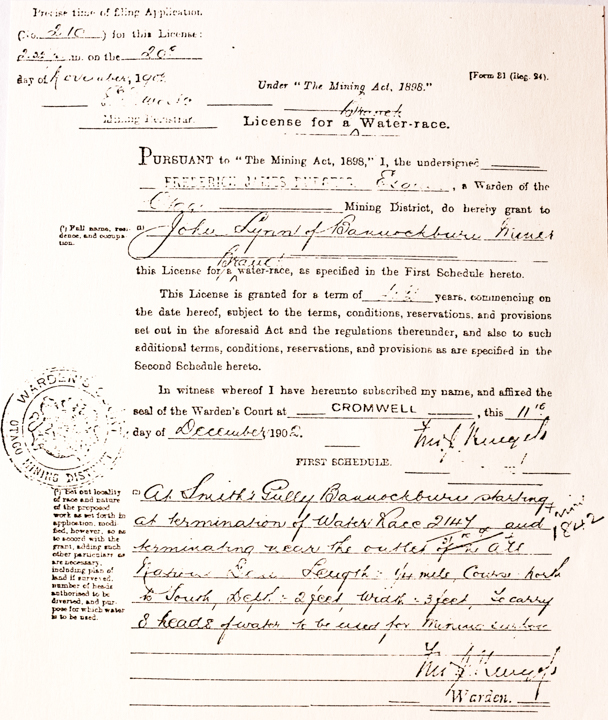 Precise time of filing Application.
(No. 210) for this License:
m. on the 20th
day of November, 190
Mining Registrar.
[Form 21 (Reg. 24).
Under "The Mining Act, 1898."
Branch
License for a Water-race.
PURSUANT to "The Mining Act, 1898," I, the undersigned
FREDERICK JAMES BURGESS Esq., a Warden of the
Otago Mining District, do hereby grant to
(¹) Full name, residence, and occupation.
(1) John Lynn of Bannockburn Miner
Branch
this License for a water-race, as specified in the First Schedule hereto.
This License is granted for a term of years, commencing on
the date hereof, subject to the terms, conditions, reservations, and provisions
set out in the aforesaid Act and the regulations thereunder, and also to such
additional terms, conditions, reservations, and provisions as are specified in the
Second Schedule hereto.
In witness whereof I have hereunto subscribed my name, and affixed the
seal of the Warden's Court at CROMWELL, this 11th
day of December 1902.
WARDEN'S COURT
OTAGO MINING DISTRICT
FIRST SCHEDULE.
(²) Set out locality
of race and nature
of the proposed
work as set forth in
application, modi-
fied, however, so as
to accord with the
grant, adding such
other particulars as
are necessary,
including plan of
land if surveyed,
number of heads
authorised to be
diverted, and pur-
pose for which water
is to be used.
(2) At Smith's Gully Bannockburn starting
at termination of Water Race 2147 and 1842
terminating near the outlet of the
Length: 1/4 mile, Course North
to South, Depth: 2 feet, Width: 3 feet, To carry
8 heads of water to be used for Mining
Warden.